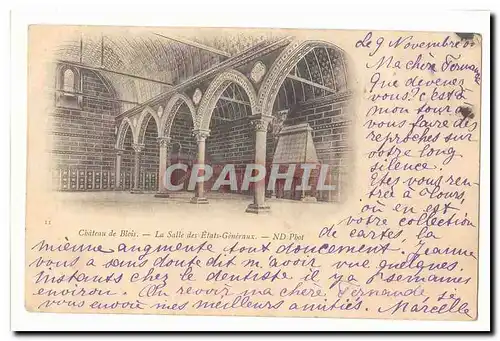 Le 9 Novembre 00
Ma chère Fernande
Que devenez
vous? c'est à
mon tour à
vous faire des
reproches sur
votre long
silence.
Etes-vous ren-
trée à Tours
où en est
votre collection
de cartes, la
CPARAMA.COM
11
Château de Blois. — La Salle des États-Généraux. — ND Phot
mienne augmente tout doucement. Jeanne
vous a sans doute dit m'avoir vue quelques
instants chez le dentiste il y a 3 semaines
environ. Au revoir ma chère Fernande, je
vous envoie mes meilleurs amitiés. Marcelle